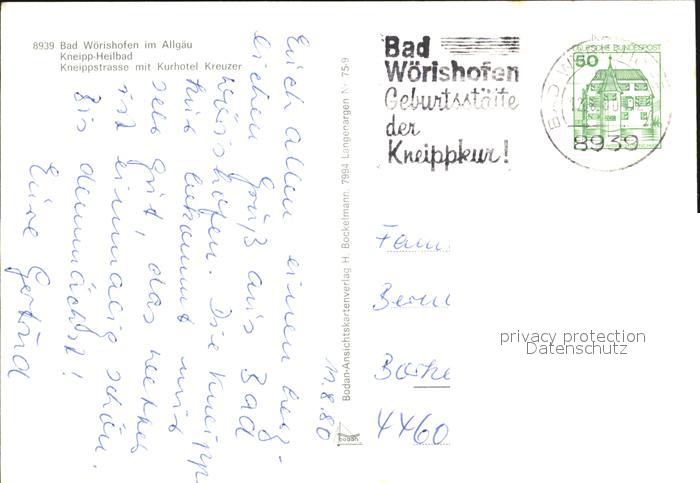 8939 Bad Wörishofen im Allgäu
Kneipp-Heilbad
Kneippstrasse mit Kurhotel Kreuzer
Euch allen einen herz-
lichen Gruß aus Bad
Wörishofen. Die Kneipp
kur bekommt mir
sehr gut, das Wetter
ist einmalig schön.
Bis demnächst!
Eure Gertrud
11.8.80
Bodan-Ansichtskartenverlag H. Bockelmann, 7994 Langenargen Nr. 75-9
bodan
Bad
Wörishofen
Geburtsstätte
der
Kneippkur!
DEUTSCHE BUNDESPOST
50
BAD WÖ
8939
Fam.
4460
privacy protection
Datenschutz